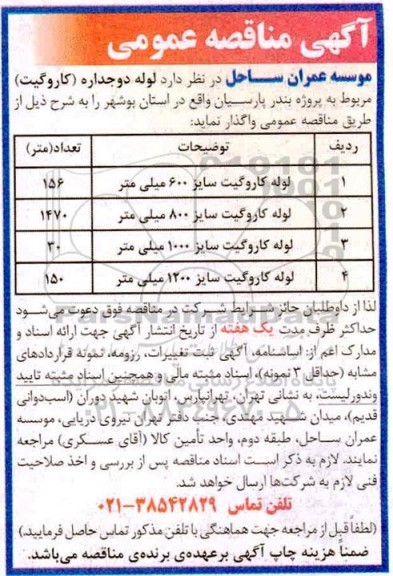 آگهی مناقصه عمومی
موسسه عمران ساحل در نظر دارد لوله دوجداره (کاروگیت)
مربوط به پروژه بندر پارسیان واقع در استان بوشهر را به شرح ذیل از
طریق مناقصه عمومی واگذار نماید:
ردیف توضیحات تعداد(متر)
۱ لوله کاروگیت سایز ۶۰۰ میلی متر ۱۵۶
۲ لوله کاروگیت سایز ۸۰۰ میلی متر ۱۴۷۰
۳ لوله کاروگیت سایز ۱۰۰۰ میلی متر ۲۰
۴ لوله کاروگیت سایز ۱۲۰۰ میلی متر ۱۵۰
لذا از داوطلبان حائز شرایط شرکت در مناقصه فوق دعوت می‌شود
حداکثر ظرف مدت یک هفته از تاریخ انتشار آگهی جهت ارائه اسناد و
مدارک اعم از: اساسنامه، آگهی ثبت تغییرات، رزومه، نمونه قراردادهای
مشابه (حداقل ۳ نمونه)، اسناد مثبته مالی و همچنین اسناد مثبته تایید
وندورلیست، به نشانی تهران، تهرانپارس، اتوبان شهید دوران (اسب‌دوانی
قدیم)، میدان شهید مهتدی، جنب دفتر تهران نیروی دریایی، موسسه
عمران ساحل، طبقه دوم، واحد تأمین کالا (آقای عسکری) مراجعه
نمایند. لازم به ذکر است اسناد مناقصه پس از بررسی و اخذ صلاحیت
فنی لازم به شرکت‌ها ارسال خواهد شد.
تلفن تماس ۳۸۵۴۲۸۲۹-۰۲۱
(لطفاً قبل از مراجعه جهت هماهنگی با تلفن مذکور تماس حاصل فرمایید.)
ضمناً هزینه چاپ آگهی برعهده‌ی برنده‌ی مناقصه می‌باشد.